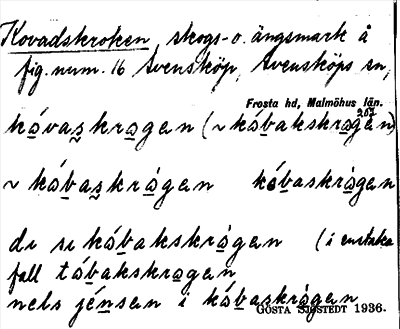 Kovadskroken, skogs- o. ängsmark å
fig. num. 16 Svensköp, Svensköps sn,
Frosta hd, Malmöhus län.
kóvaskrogen (~ kóbakskrogen)
~ kóbaskrógan kóbaskrógan
di se kóbakskrógan (i enstaka
fall tóbakskrogan
nels jénsen i kóbaskrógan
GÖSTA SJÖSTEDT 1936.